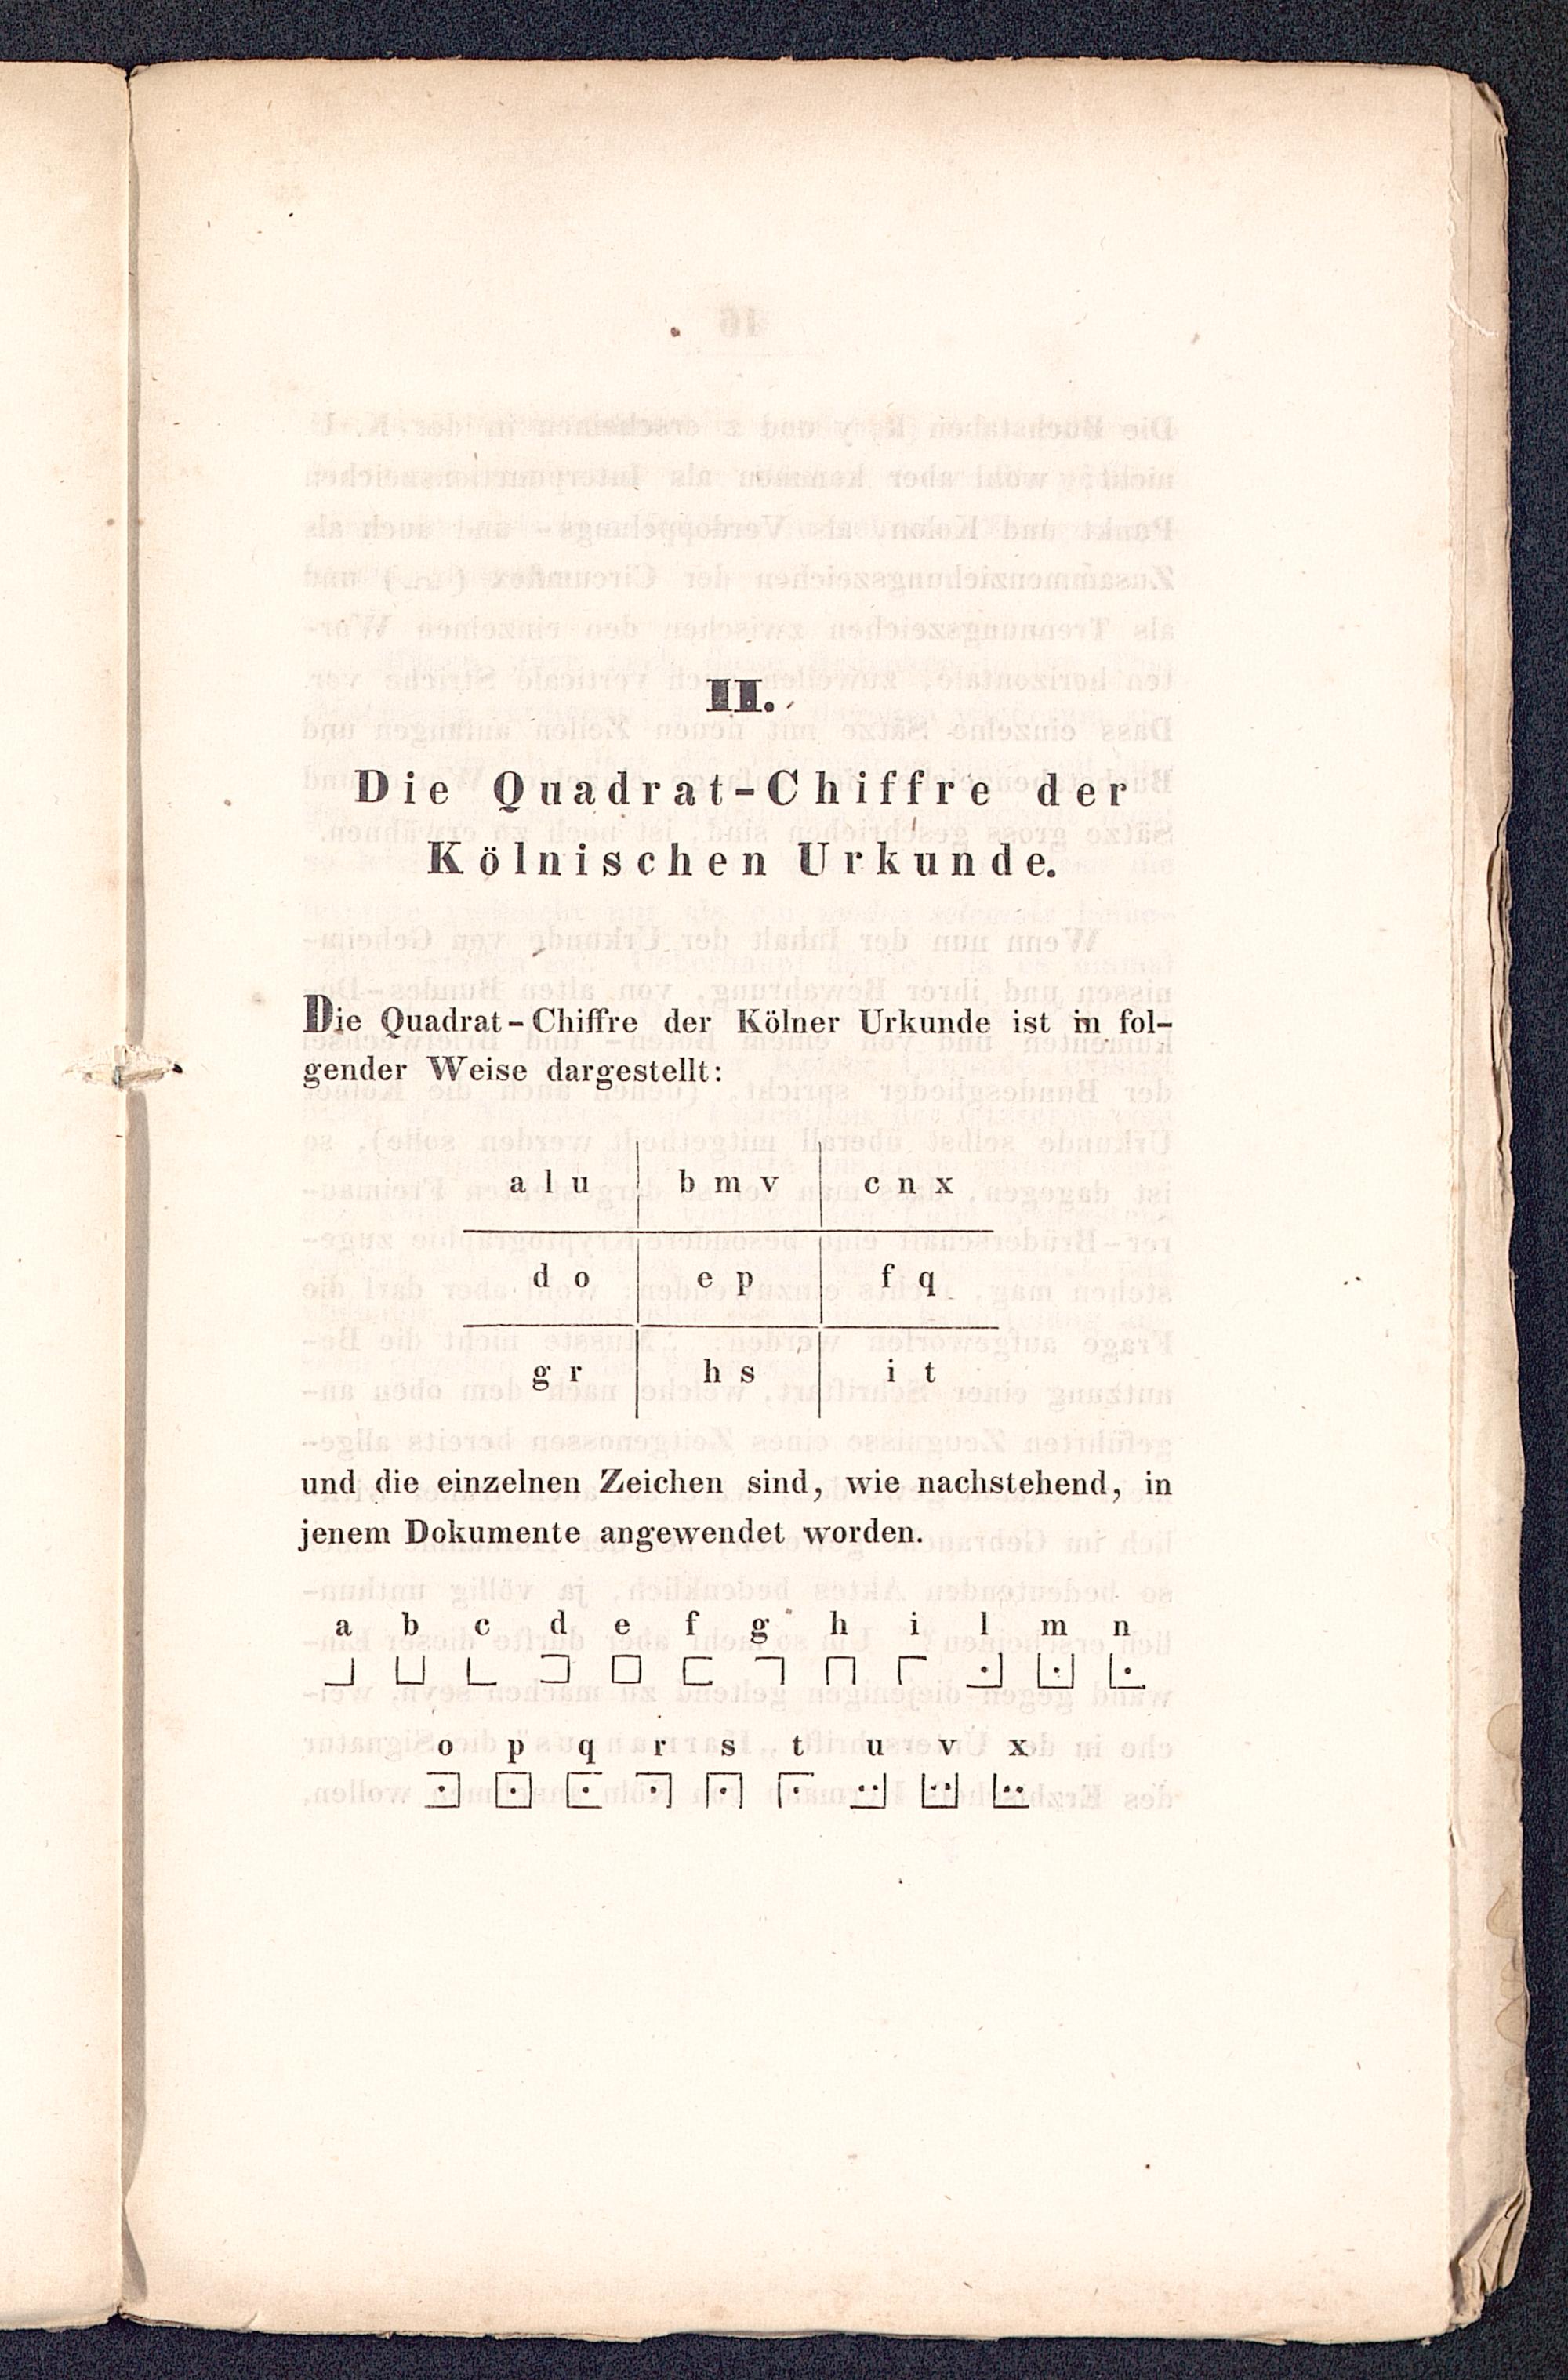 II.
Die Quadrat-Chiffre der
Kölnischen Urkunde.
Die Quadrat-Chiffre der Kölner Urkunde ist in fol-
gender Weise dargestellt:
a l u b m v c n x
d o e p f q
g r h s i t
und die einzelnen Zeichen sind, wie nachstehend, in
jenem Dokumente angewendet worden.
a b c d e f g h i l m n
o p q r s t u v x